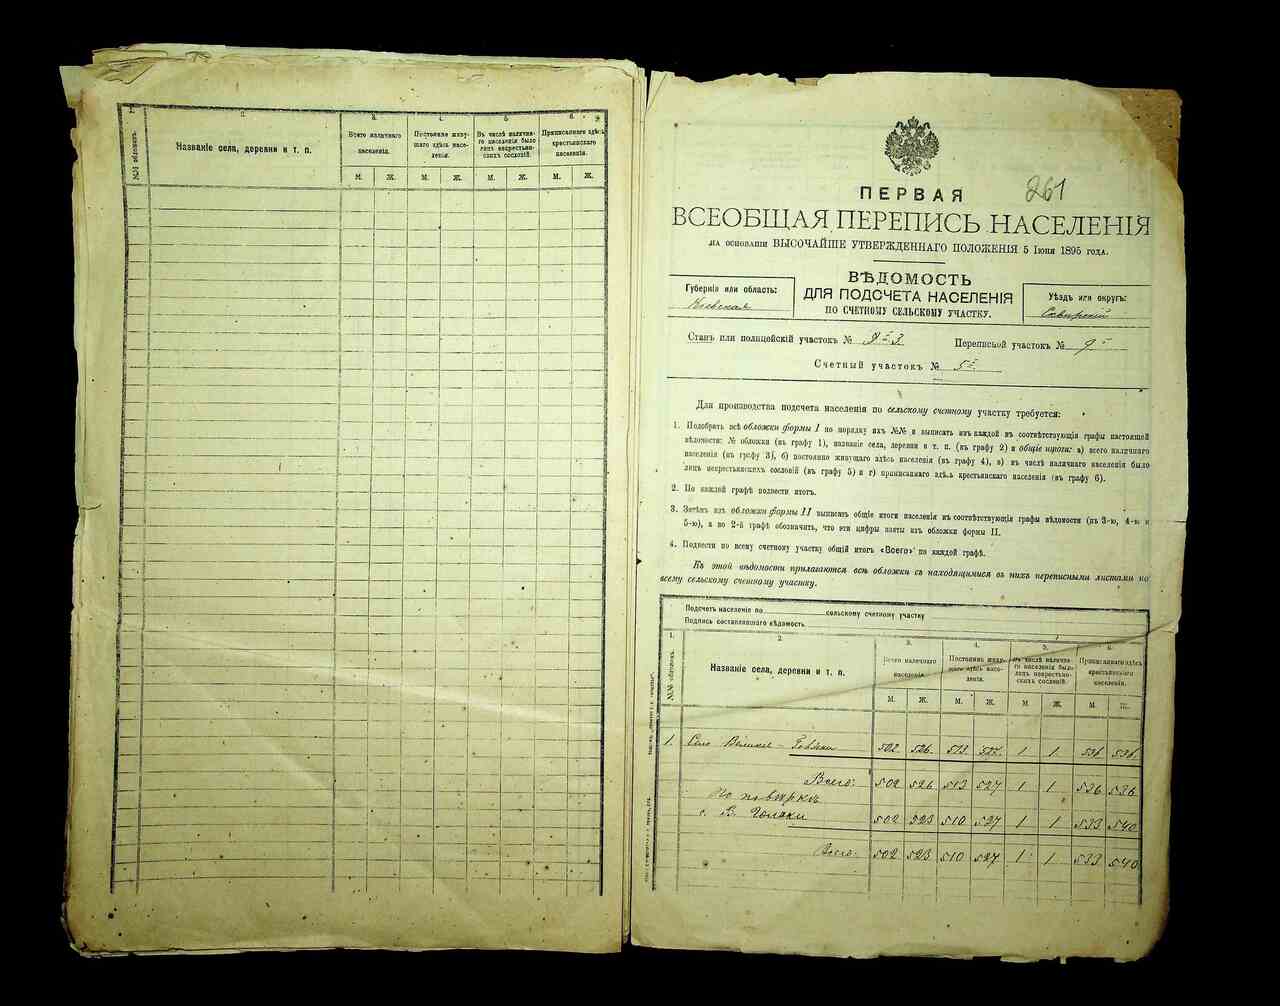 1. 2. 3. 4. 5. 6.
№№ обложекъ.
Названіе села, деревни и т. п.
Всего наличнаго населенія.
Постоянно живущаго здѣсь населенія.
Въ числѣ наличнаго населенія было лицъ некрестьянскихъ сословій.
Приписаннаго здѣсь крестьянскаго населенія.
М. Ж. М. Ж. М. Ж. М. Ж.
261
ПЕРВАЯ
ВСЕОБЩАЯ ПЕРЕПИСЬ НАСЕЛЕНІЯ
НА ОСНОВАНІИ ВЫСОЧАЙШЕ УТВЕРЖДЕННАГО ПОЛОЖЕНІЯ 5 Іюня 1895 года.
ВѢДОМОСТЬ
ДЛЯ ПОДСЧЕТА НАСЕЛЕНІЯ
ПО СЧЕТНОМУ СЕЛЬСКОМУ УЧАСТКУ.
Губернія или область:
Кіевская
Уѣздъ или округъ:
Сквирскій
Станъ или полицейскій участокъ №
Переписной участокъ № 9
Счетный участокъ № 5
Для производства подсчета населенія по сельскому счетному участку требуется:
1. Подобрать всѣ обложки формы I по порядку ихъ №№ и выписать изъ каждой въ соотвѣтствующія графы настоящей
вѣдомости: № обложки (въ графу 1), названіе села, деревни и т. п. (въ графу 2) и общіе итоги: а) всего наличнаго
населенія (въ графу 3), б) постоянно живущаго здѣсь населенія (въ графу 4), в) въ числѣ наличнаго населенія было
лицъ некрестьянскихъ сословій (въ графу 5) и г) приписаннаго здѣсь крестьянскаго населенія (въ графу 6).
2. По каждой графѣ подвести итогъ.
3. Затѣмъ изъ обложки формы II выписать общіе итоги населенія въ соотвѣтствующія графы вѣдомости (въ 3-ю, 4-ю и
5-ю), а во 2-й графѣ обозначить, что эти цифры взяты изъ обложки формы II.
4. Подвести по всему счетному участку общій итогъ «Всего» по каждой графѣ.
Къ этой вѣдомости прилагаются всѣ обложки съ находящимися въ нихъ переписными листами по
всему сельскому счетному участку.
Подсчетъ населенія по сельскому счетному участку
Подпись составлявшаго вѣдомость
1. 2. 3. 4. 5. 6.
№№ обложекъ.
Названіе села, деревни и т. п.
Всего наличнаго населенія.
Постоянно живущаго здѣсь населенія.
Въ числѣ наличнаго населенія было лицъ некрестьянскихъ сословій.
Приписаннаго здѣсь крестьянскаго населенія.
М. Ж. М. Ж. М. Ж. М. Ж.
1. Село Великія 502. 526. 513. 527. 1 1. 536. 536.
Всего: 502 526 513 527 1 1 536 536
По повѣркѣ
с. В. Голяки 502 523 510 527 1 1 533 540
Всего: 502 523 510 527 1 1 533 540